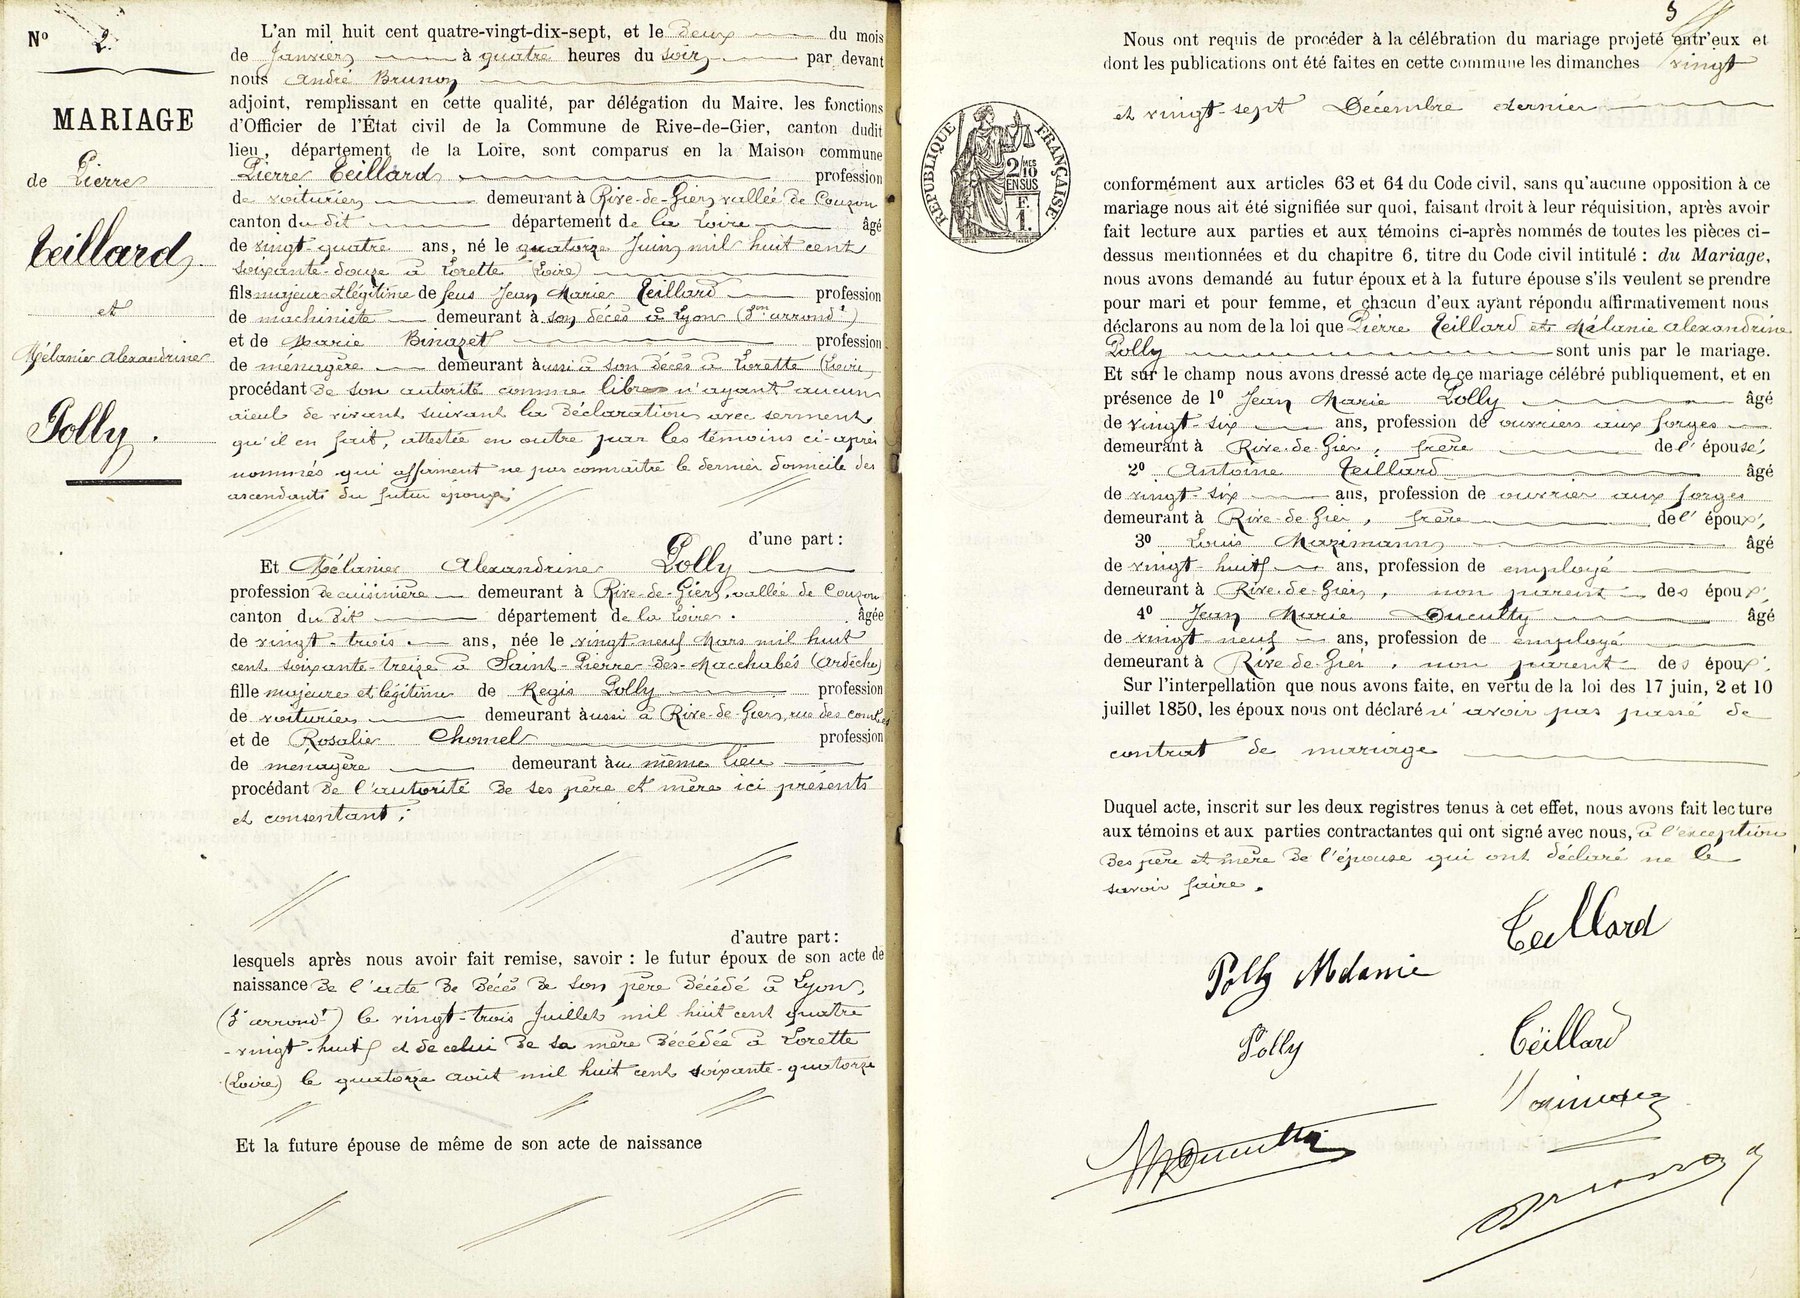 Nº 2
MARIAGE
de Pierre
Teillard
et
Mélanie Alexandrine
Polly.
L'an mil huit cent quatre-vingt-dix-sept, et le deux du mois
de Janvier à quatre heures du soir par devant
nous André Brunon
adjoint, remplissant en cette qualité, par délégation du Maire, les fonctions
d'Officier de l'État civil de la Commune de Rive-de-Gier, canton dudit
lieu, département de la Loire, sont comparus en la Maison commune
Pierre Teillard profession
de voiturier demeurant à Rive-de-Gier, vallée de Couzon
canton du dit département de la Loire âgé
de vingt quatre ans, né le quatorze Juin mil huit cent
soixante-douze à Lorette (Loire)
fils majeur et légitime de feus Jean Marie Teillard profession
de machiniste demeurant à son décès à Lyon (3me arrondt)
et de Marie Binazet profession
de ménagère demeurant aussi à son décès à Lorette (Loire)
procédant de son autorité comme libre n'ayant aucun
aïeul de vivant suivant la déclaration avec serment
qu'il en fait, attestée en outre par les témoins ci-après
nommés qui affirment ne pas connaître le dernier domicile des
ascendants du futur époux;
d'une part :
Et Mélanie Alexandrine Polly
profession de cuisinière demeurant à Rive-de-Gier, vallée de Couzon
canton du dit département de la Loire. âgée
de vingt-trois ans, née le vingt neuf Mars mil huit
cent soixante-treize à Saint-Pierre-des-Macchabés (Ardèche)
fille majeure et légitime de Regis Polly profession
de voiturier demeurant aussi à Rive-de-Gier, rue des combes
et de Rosalie Chomel profession
de ménagère demeurant au même lieu
procédant de l'autorité de ses père et mère ici présents
et consentant;
d'autre part :
lesquels après nous avoir fait remise, savoir : le futur époux de son acte de
naissance de l'acte de décès de son père décédé à Lyon,
(3e arrondt) le vingt-trois Juillet mil huit cent quatre
-vingt-huit et de celui de sa mère décédée à Lorette
(Loire) le quatorze août mil huit cent soixante-quatorze
Et la future épouse de même de son acte de naissance
3
Nous ont requis de procéder à la célébration du mariage projeté entr'eux et
dont les publications ont été faites en cette commune les dimanches vingt
et vingt-sept Décembre dernier
RÉPUBLIQUE FRANÇAISE
2/10 MES
EN SUS
F.
1.
conformément aux articles 63 et 64 du Code civil, sans qu'aucune opposition à ce
mariage nous ait été signifiée sur quoi, faisant droit à leur réquisition, après avoir
fait lecture aux parties et aux témoins ci-après nommés de toutes les pièces ci-
dessus mentionnées et du chapitre 6, titre du Code civil intitulé : du Mariage,
nous avons demandé au futur époux et à la future épouse s'ils veulent se prendre
pour mari et pour femme, et chacun d'eux ayant répondu affirmativement nous
déclarons au nom de la loi que Pierre Teillard et Mélanie Alexandrine
Polly sont unis par le mariage.
Et sur le champ nous avons dressé acte de ce mariage célébré publiquement, et en
présence de 1º Jean Marie Polly âgé
de vingt-six ans, profession de ouvrier aux forges
demeurant à Rive-de-Gier, frère de l'épouse,
2º Antoine Teillard âgé
de vingt-six ans, profession de ouvrier aux forges
demeurant à Rive-de-Gier, frère de l'époux,
3º Louis Mazimann âgé
de vingt-huit ans, profession de employé
demeurant à Rive-de-Gier, non parent des époux,
4º Jean Marie Ducully âgé
de vingt neuf ans, profession de employé
demeurant à Rive-de-Gier, non parent des époux,
Sur l'interpellation que nous avons faite, en vertu de la loi des 17 juin, 2 et 10
juillet 1850, les époux nous ont déclaré n'avoir pas passé de
contrat de mariage
Duquel acte, inscrit sur les deux registres tenus à cet effet, nous avons fait lecture
aux témoins et aux parties contractantes qui ont signé avec nous, à l'exception
des père et mère de l'épouse qui ont déclaré ne le
savoir faire.
Teillard
Polly Melanie
Polly
Teillard